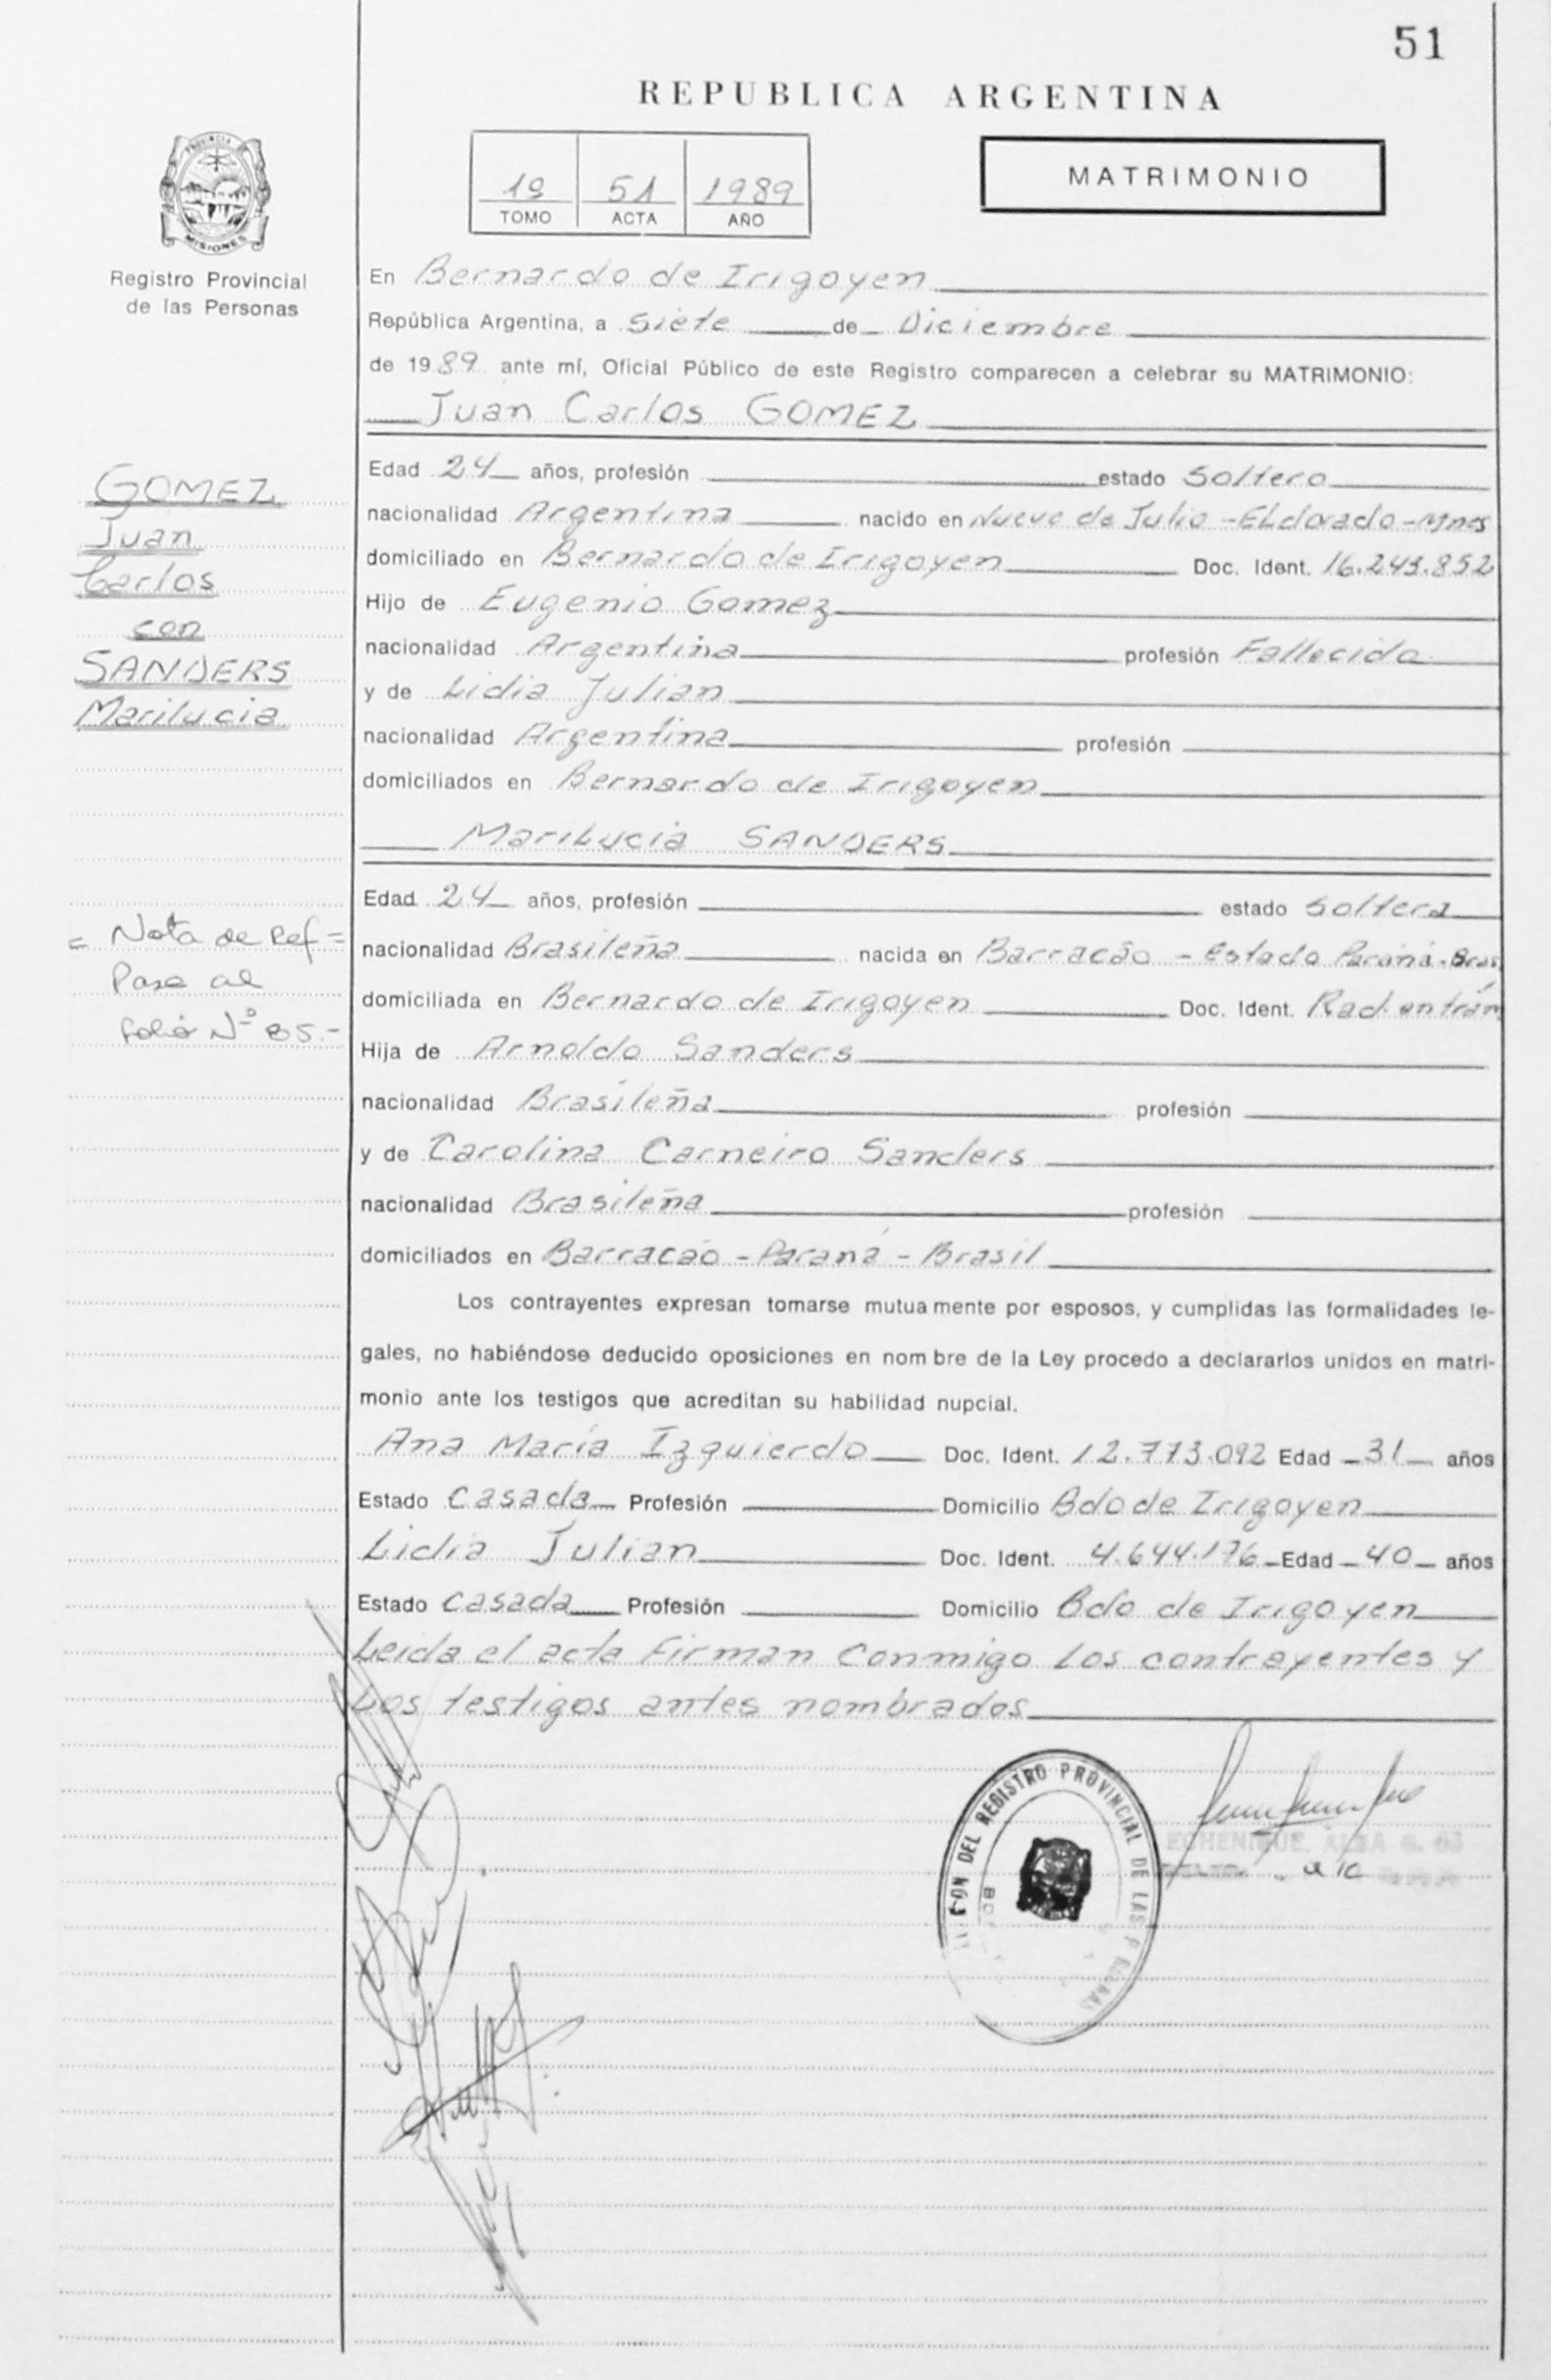 51
REPUBLICA ARGENTINA
PROVINCIA
MISIONES
Registro Provincial
de las Personas
1º 51 1989
TOMO ACTA AÑO
MATRIMONIO
En Bernardo de Irigoyen
República Argentina, a Siete de Diciembre
de 1989 ante mí, Oficial Público de este Registro comparecen a celebrar su MATRIMONIO:
Juan Carlos GOMEZ
Edad 24 años, profesión estado Soltero
nacionalidad Argentina nacido en Nueve de Julio - ELdorado - Mnes
domiciliado en Bernardo de Irigoyen Doc. Ident. 16.245.852
Hijo de Eugenio Gomez
nacionalidad Argentina profesión Fallecido
y de Lidia Julian
nacionalidad Argentina profesión
domiciliados en Bernardo de Irigoyen
GOMEZ
Juan
Carlos
con
SANDERS
Marilucia
MariLucia SANDERS
Edad 24 años, profesión estado Soltera
nacionalidad Brasileña nacida en Barracão - Estado Paraná - Bras
domiciliada en Bernardo de Irigoyen Doc. Ident. Rad. en trám
Hija de Arnoldo Sanders
nacionalidad Brasileña profesión
y de Carolina Carneiro Sanders
nacionalidad Brasileña profesión
domiciliados en Barracão - Paraná - Brasil
= Nota de Ref =
Pasa al
folio Nº 85.-
Los contrayentes expresan tomarse mutuamente por esposos, y cumplidas las formalidades le-
gales, no habiéndose deducido oposiciones en nombre de la Ley procedo a declararlos unidos en matri-
monio ante los testigos que acreditan su habilidad nupcial.
Ana María Izquierdo Doc. Ident. 12.773.092 Edad 31 años
Estado Casada Profesión Domicilio Bdo de Irigoyen
Lidia Julian Doc. Ident. 4.644.176 Edad 40 años
Estado Casada Profesión Domicilio Bdo de Irigoyen
Leida el acta Firman Conmigo Los contrayentes y
Los testigos antes nombrados
DEL REGISTRO PROVINCIAL DE LAS
ECHENIQUE, ALBA G.